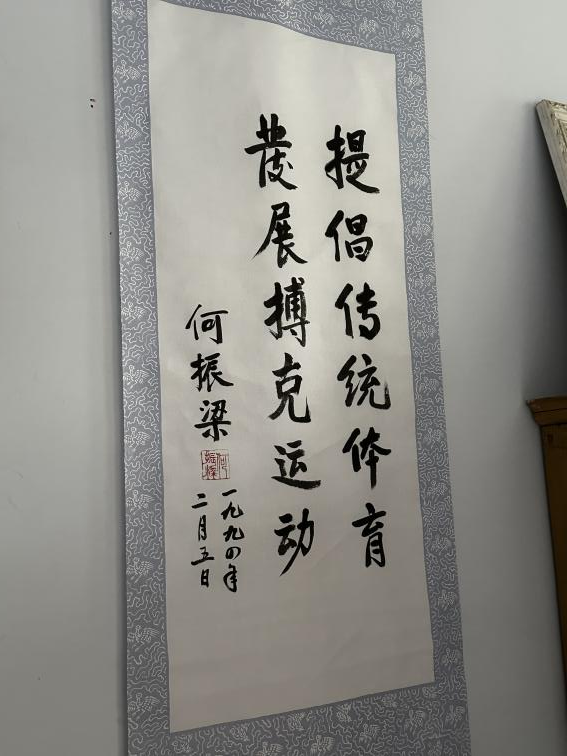 提倡传统体育
發展搏克运动
何振梁
一九九四年
二月五日